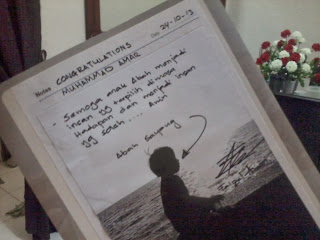 Date 24-10-13
CONGRATULATIONS
Notes MUHAMMAD AMAR
- Semoga anak Abah menjadi
insan yg terpilih dimasa
hadapan dan menjadi insan
yg soleh .... Amin
Abah Sayang